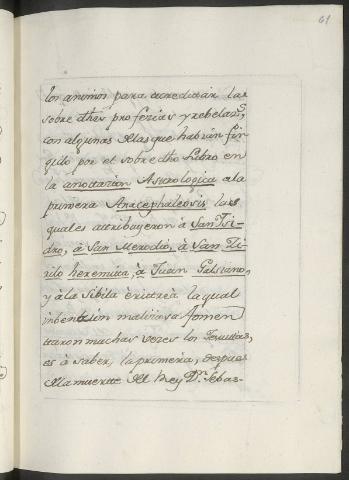 61
los animos para acreditàr las
sobre dhas profesias y rebelans
con algunas dlas que habian fin-
gido por el sobre dho Libro en
la anotazion Astrologica a la
primera Anacephaleosis las
quales attribuyeron à San Isi-
dro, à San Merodio, à San Ci-
rilo heremita, à Juan
y à la Sibila èritreà la qual
inbención maliziosa fomen
taron muchas vezes los Jesuitas,
es à saber, la primera, despues
dla muerte del Rey Dn Sebas-